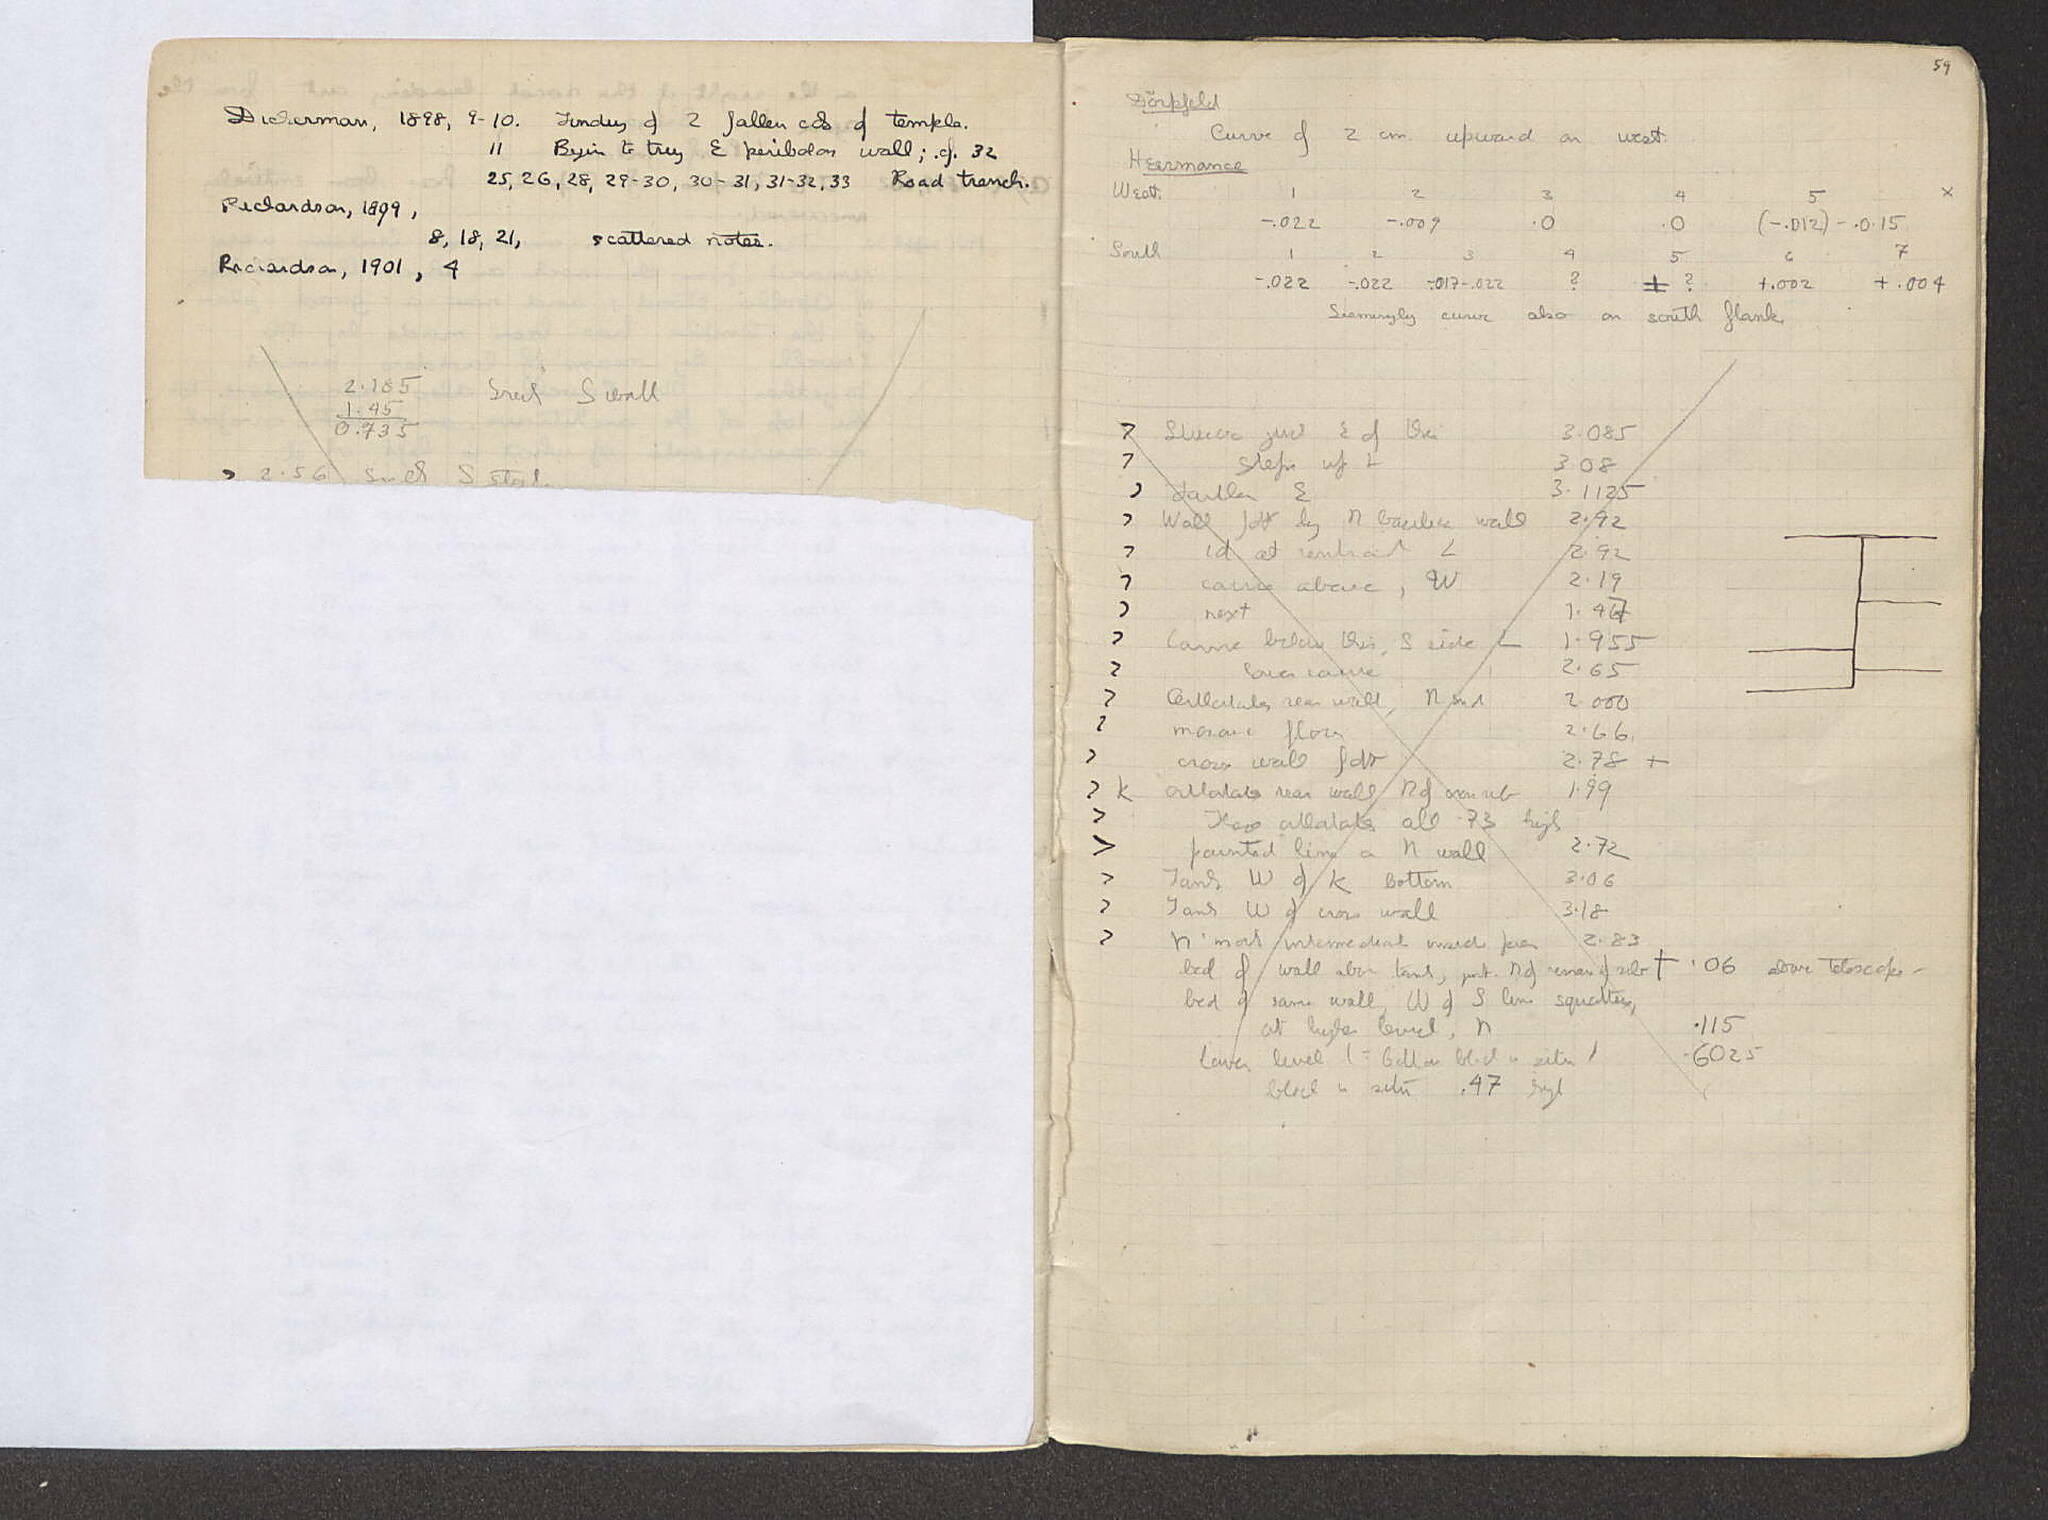 Dickerman, 1898, 9-10. Finding of 2 fallen cols of temple.
11 Begin to try E peribolos wall; cf. 32
25, 26, 28, 29-30, 30-31, 31-32, 33 Road trench.
Richardson, 1899,
8, 18, 21, scattered notes.
Richardson, 1901, 4
2.185 S wall
1.45
0.735
2.56 S
59
Dörpfeld
Curve of 2 cm. upward on west.
Heermance
West. 1 2 3 4 5 x
-.022 -.009 .0 .0 (-.012) -.0.15
South 1 2 3 4 5 6 7
-.022 -.022 -.017-.022 ? ± ? +.002 +.004
Seemingly curve also on south flank.
Stucco just E of this 3.085
Steps up L 3.08
Farther E 3.1125
Wall fdt by N wall 2.92
id at L 2.92
course above, W 2.19
next 1.47
Course below this, S side L 1.955
Lower course 2.65
Orthostates rear wall, N end 2.000
mosaic floor 2.66
cross wall fdt 2.78 +
K orthostate rear wall N of 1.99
These orthostates all .73 high
painted line on N wall 2.72
Tank W of K bottom 3.06
Tank W of cross wall 3.18
N'most intermediate 2.83
bed of wall above tank, N of + .06 above telescope -
bed of same wall, W of S line squatters,
at higher level, N .115
Lower level (= bottom block in situ) .6025
block in situ .47 high